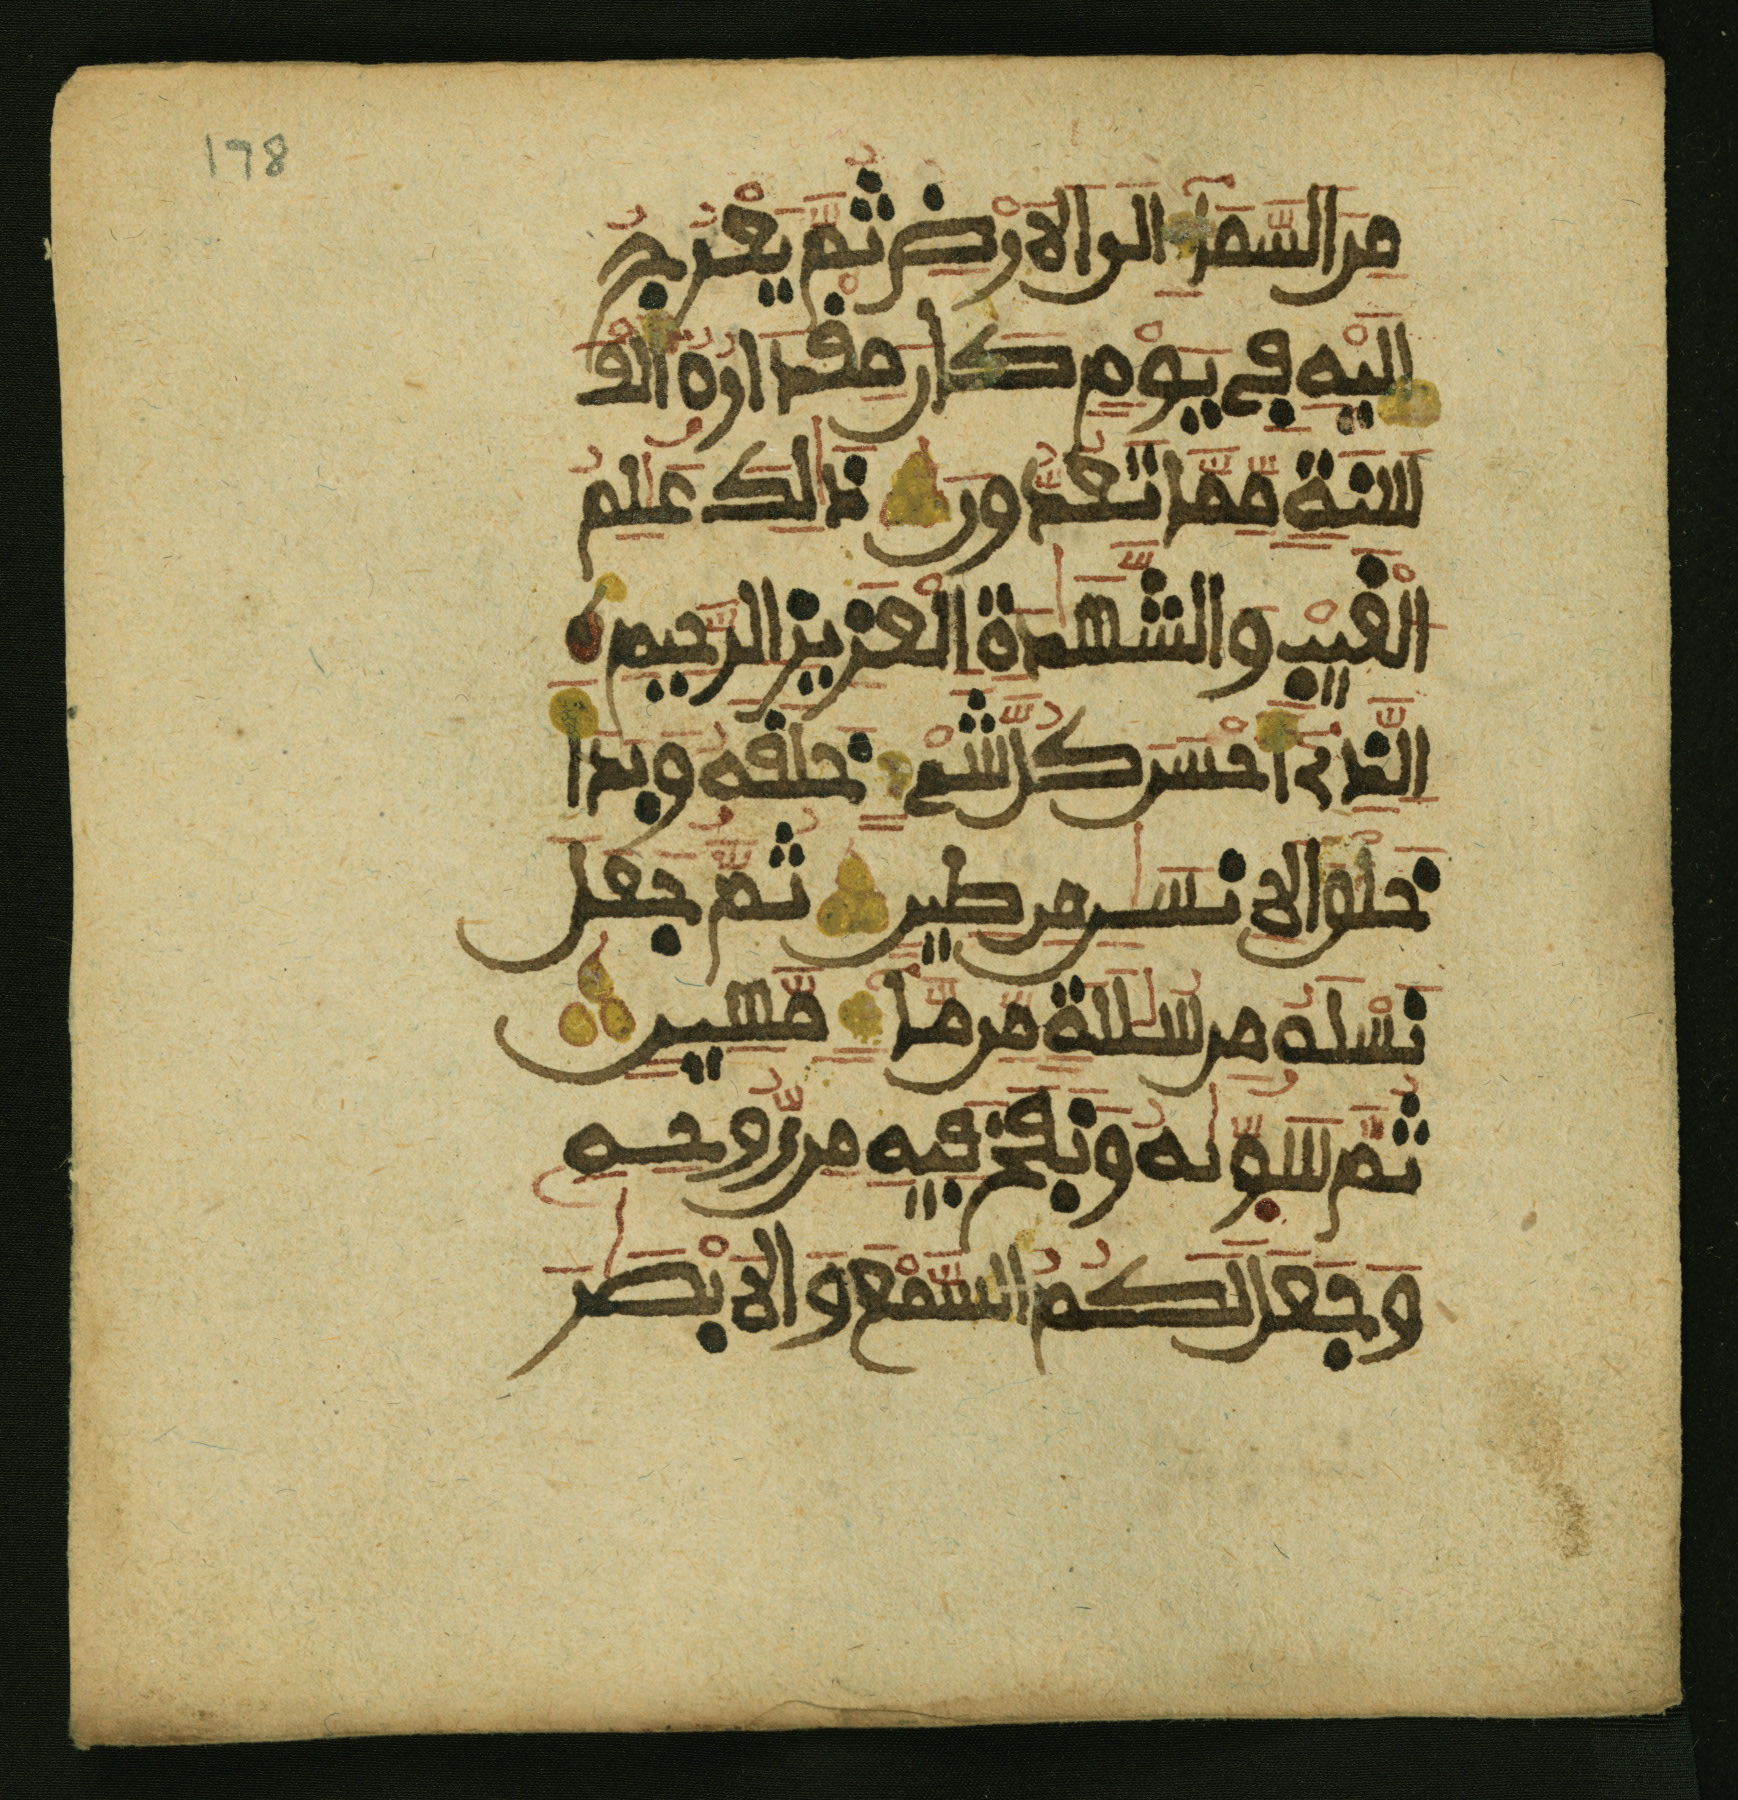 178
مِنَ السَّمَآءِ الَى الَارْضِ ثُمَّ يَعْرُجُ
إِلَيْهِ فِي يَوْمٍ كَانَ مِقْدَارُهُ أَلْفَ
سَنَةٍ مِّمَّا تَعُدُّونَ ذَٰلِكَ عَٰلِمُ
الْغَيْبِ وَالشَّهَٰدَةِ الْعَزِيزُ الرَّحِيمُ
الَّذِىٓ أَحْسَنَ كُلَّ شَىْءٍ خَلَقَهُۥ وَبَدَأَ
خَلْقَ الِانسَٰنِ مِن طِينٍ ثُمَّ جَعَلَ
نَسْلَهُۥ مِن سُلَٰلَةٍ مِّن مَّآءٍ مَّهِينٍ
ثُمَّ سَوَّىٰهُ وَنَفَخَ فِيهِ مِن رُّوحِهِۦ
وَجَعَلَ لَكُمُ السَّمْعَ وَالَابْصَٰرَ